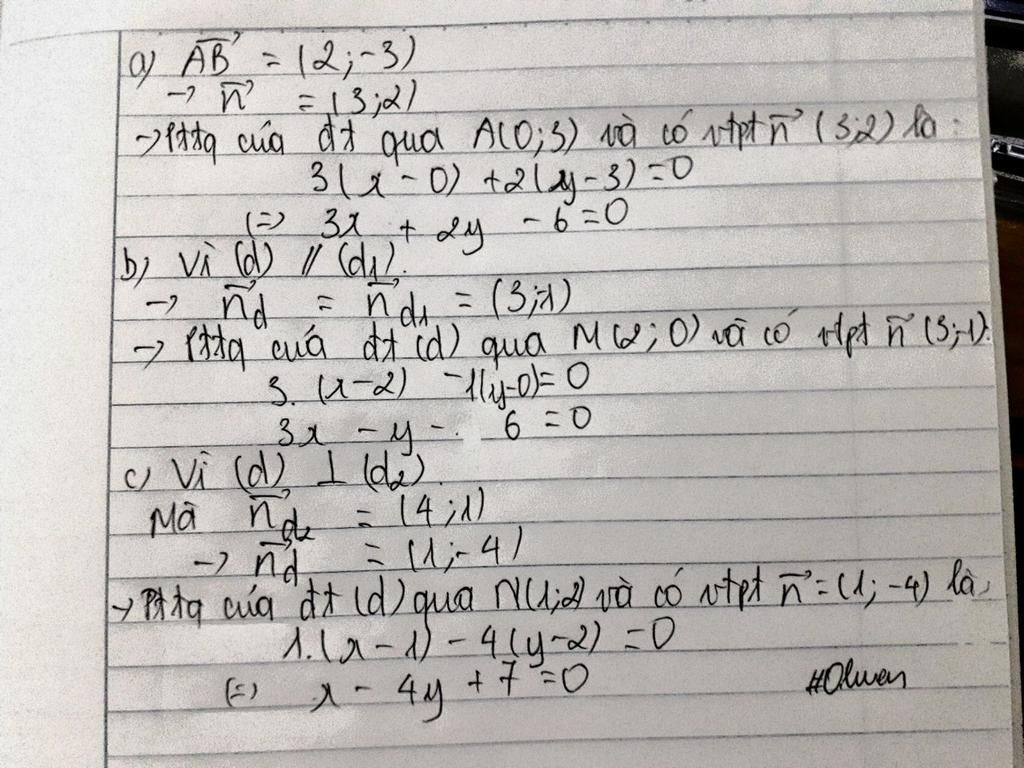 a) AB⃗ = (2;-3)
→ n⃗ = (3;2)
→ Pttq của đt qua A(0;3) và có vtpt n⃗ (3;2) là:
3(x - 0) + 2(y - 3) = 0
(=) 3x + 2y - 6 = 0
b) Vì (d) // (d₁).
→ n⃗d = n⃗d₁ = (3;-1)
→ Pttq cuả đt (d) qua M(2;0) và có vtpt n⃗ (3;-1).
3. (x-2) -1(y-0) = 0
3x - y - 6 = 0
c) Vì (d) ⊥ (d₂).
Mà n⃗d₂ = (4;1)
→ n⃗d = (1;-4)
→ Pttq của đt (d) qua N(1;2) và có vtpt n⃗ = (1;-4) là,
1.(x - 1) - 4(y-2) = 0
(=) x - 4y + 7 = 0
#Olwen